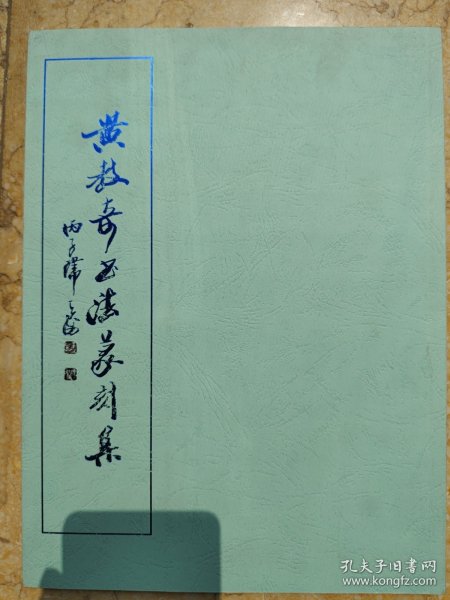 黄教奇书法篆刻集
丙子
孔夫子旧书网
www.kongfz.com